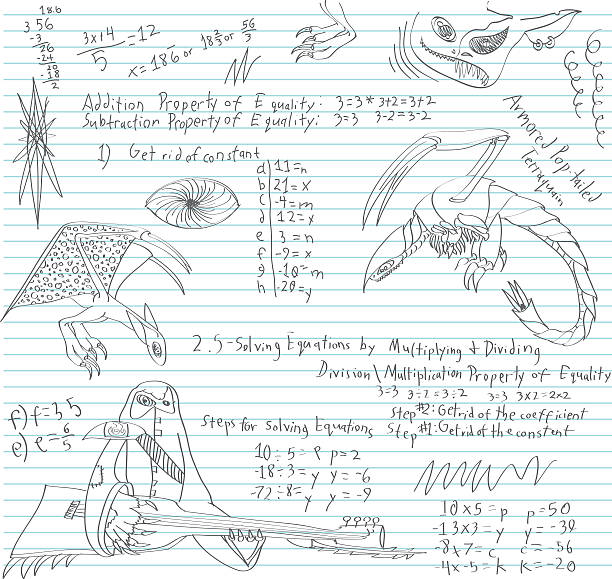 18.6
3 56
-3
26
-24
20
-18
2
3x+4 =12
5
x=18.6 or 18 2/3 or 56/3
Addition Property of Equality: 3=3 * 3+2=3+2
Subtraction Property of Equality: 3=3 3-2=3-2
1) Get rid of constant
a 11=n
b 21=x
c -4=m
d 12=x
e 3=n
f -9=x
g -10=m
h -20=y
Armored Pop-tailed
Terraquain
2.5-Solving Equations by Multiplying & Dividing
Division\Multiplication Property of Equality
3=3 3÷2=3÷2 3=3 3x2=2x2
Step #2: Get rid of the coefficient
Step #1: Get rid of the constant
f) f=35
e) e=6/5
Steps for solving Equations
10÷5=P P=2
-18÷3=y y=-6
-72÷8=y y=-9
10x5=p p=50
-13x3=y y=-39
-8x7=c c=-56
-4x-5=k k=-20